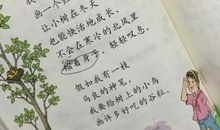 让小树在冬天
也能快活地成长，
不会在寒冷的北风里
着身子，轻轻叹息。
假如我有一枝
马良的神笔，
我要给树上的小鸟
画许多好吃的谷粒。